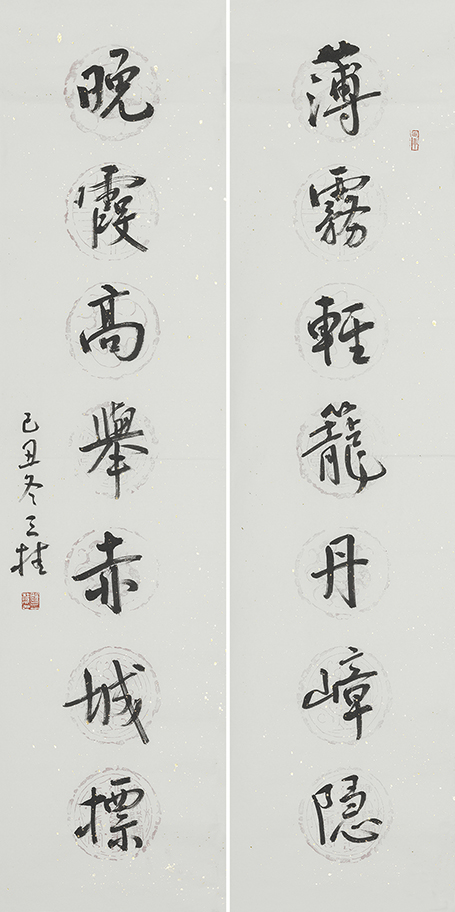 薄霧輕籠丹嶂隐
晚霞高舉赤城標
己丑冬三桂